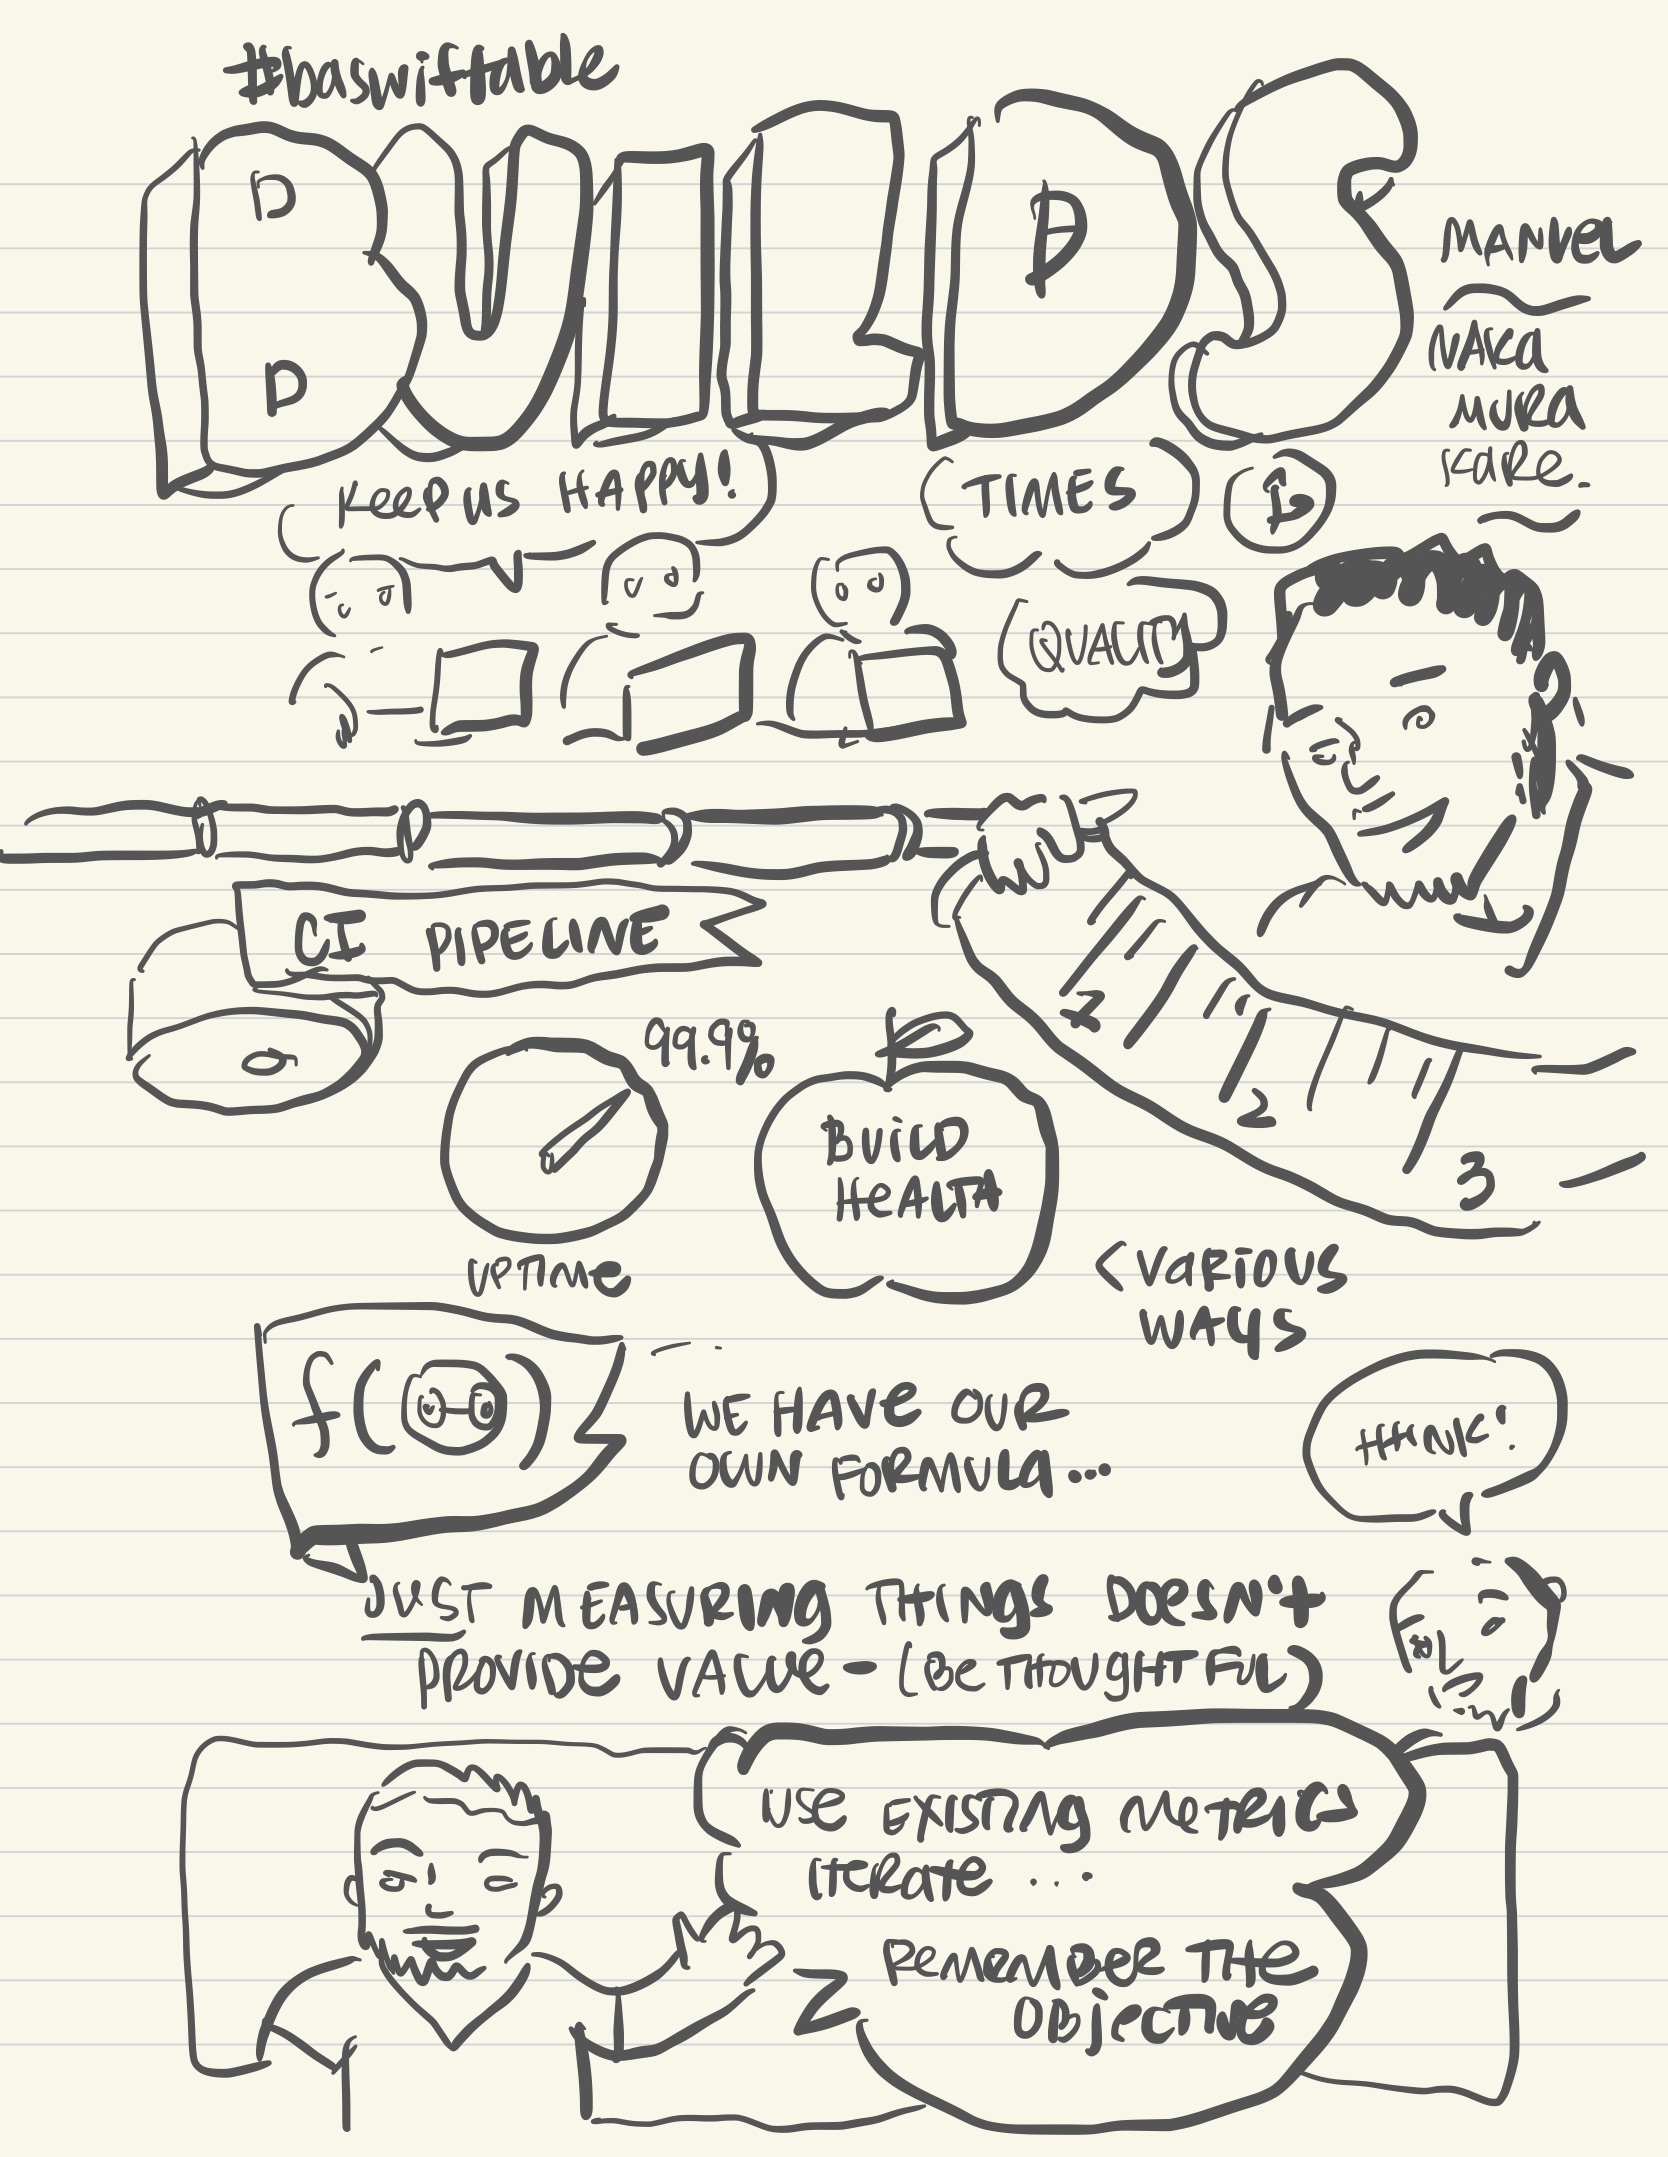 #baswiftable
BUILDS
MANUEL
NAKA
MURA
KARE.
KEEP US HAPPY!
TIMES
QUALITY
CI PIPELINE
1
2
3
99.9%
UPTIME
BUILD
HEALTH
< VARIOUS
WAYS
f( )
WE HAVE OUR
OWN FORMULA...
THINK!
JUST MEASURING THINGS DOESN't
PROVIDE VALUE - (BE THOUGHTFUL)
USE EXISTING METRICS
ITERATE ...
REMEMBER THE
OBJECTIVE